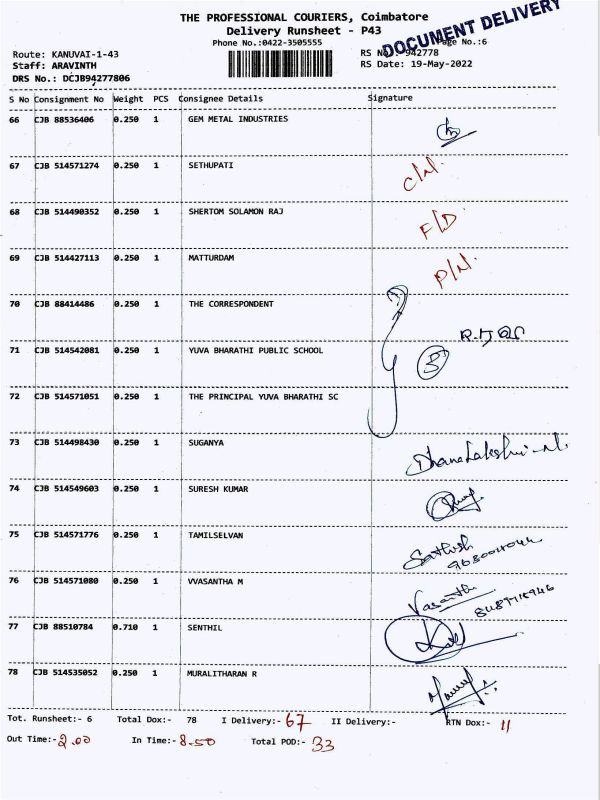 THE PROFESSIONAL COURIERS, Coimbatore
Delivery Runsheet - P43
DOCUMENT DELIVERY
Phone No.:0422-3505555 Page No.:6
Route: KANUVAI-1-43 RS No.:942778
Staff: ARAVINTH RS Date: 19-May-2022
DRS No.: DCJB94277806
S No Consignment No Weight PCS Consignee Details Signature
66 CJB 88536406 0.250 1 GEM METAL INDUSTRIES
67 CJB 514571274 0.250 1 SETHUPATI C/N.
68 CJB 514490352 0.250 1 SHERTOM SOLAMON RAJ F/D
69 CJB 514427113 0.250 1 MATTURDAM P/N.
70 CJB 88414486 0.250 1 THE CORRESPONDENT
71 CJB 514542081 0.250 1 YUVA BHARATHI PUBLIC SCHOOL
72 CJB 514571051 0.250 1 THE PRINCIPAL YUVA BHARATHI SC
73 CJB 514498430 0.250 1 SUGANYA Dhanalakshmi
74 CJB 514549603 0.250 1 SURESH KUMAR
75 CJB 514571776 0.250 1 TAMILSELVAN Sathish
76 CJB 514571080 0.250 1 VVASANTHA M Vasantha
77 CJB 88510784 0.710 1 SENTHIL
78 CJB 514535052 0.250 1 MURALITHARAN R
Tot. Runsheet:- 6 Total Dox:- 78 I Delivery:- 67 II Delivery:- RTN Dox:- 11
Out Time:- 2.00 In Time:- 8.50 Total POD:- 33